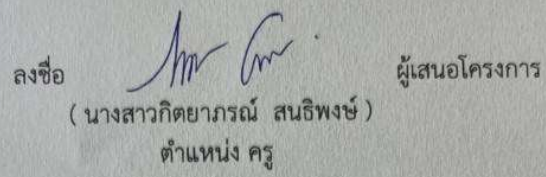 ลงชื่อ ผู้เสนอโครงการ
( นางสาวกิตยาภรณ์ สนธิพงษ์ )
ตำแหน่ง ครู